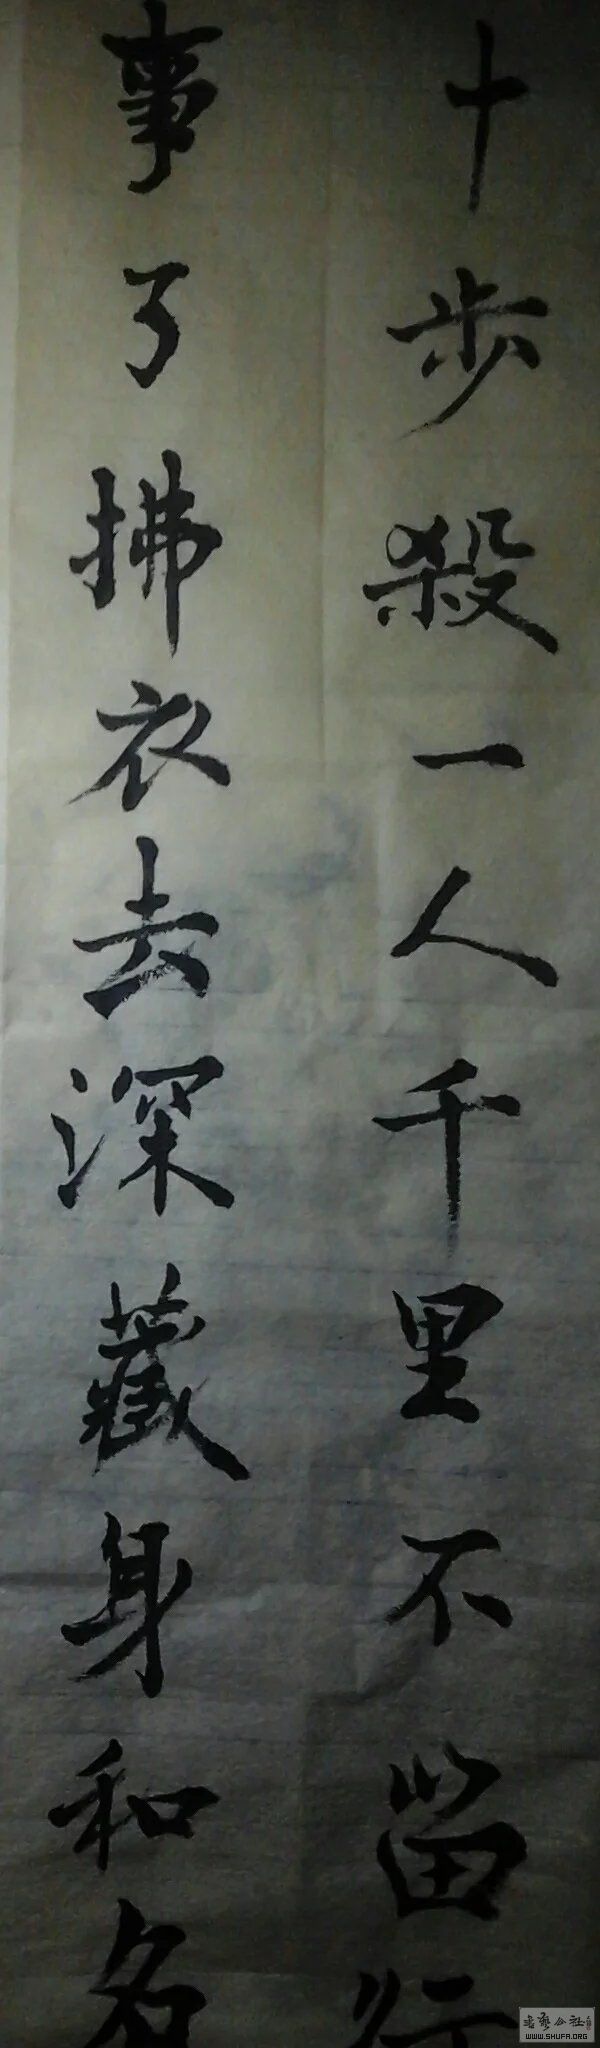 十步殺一人千里不留行
事了拂衣去深藏身和名
WWW.SHUFA.ORG